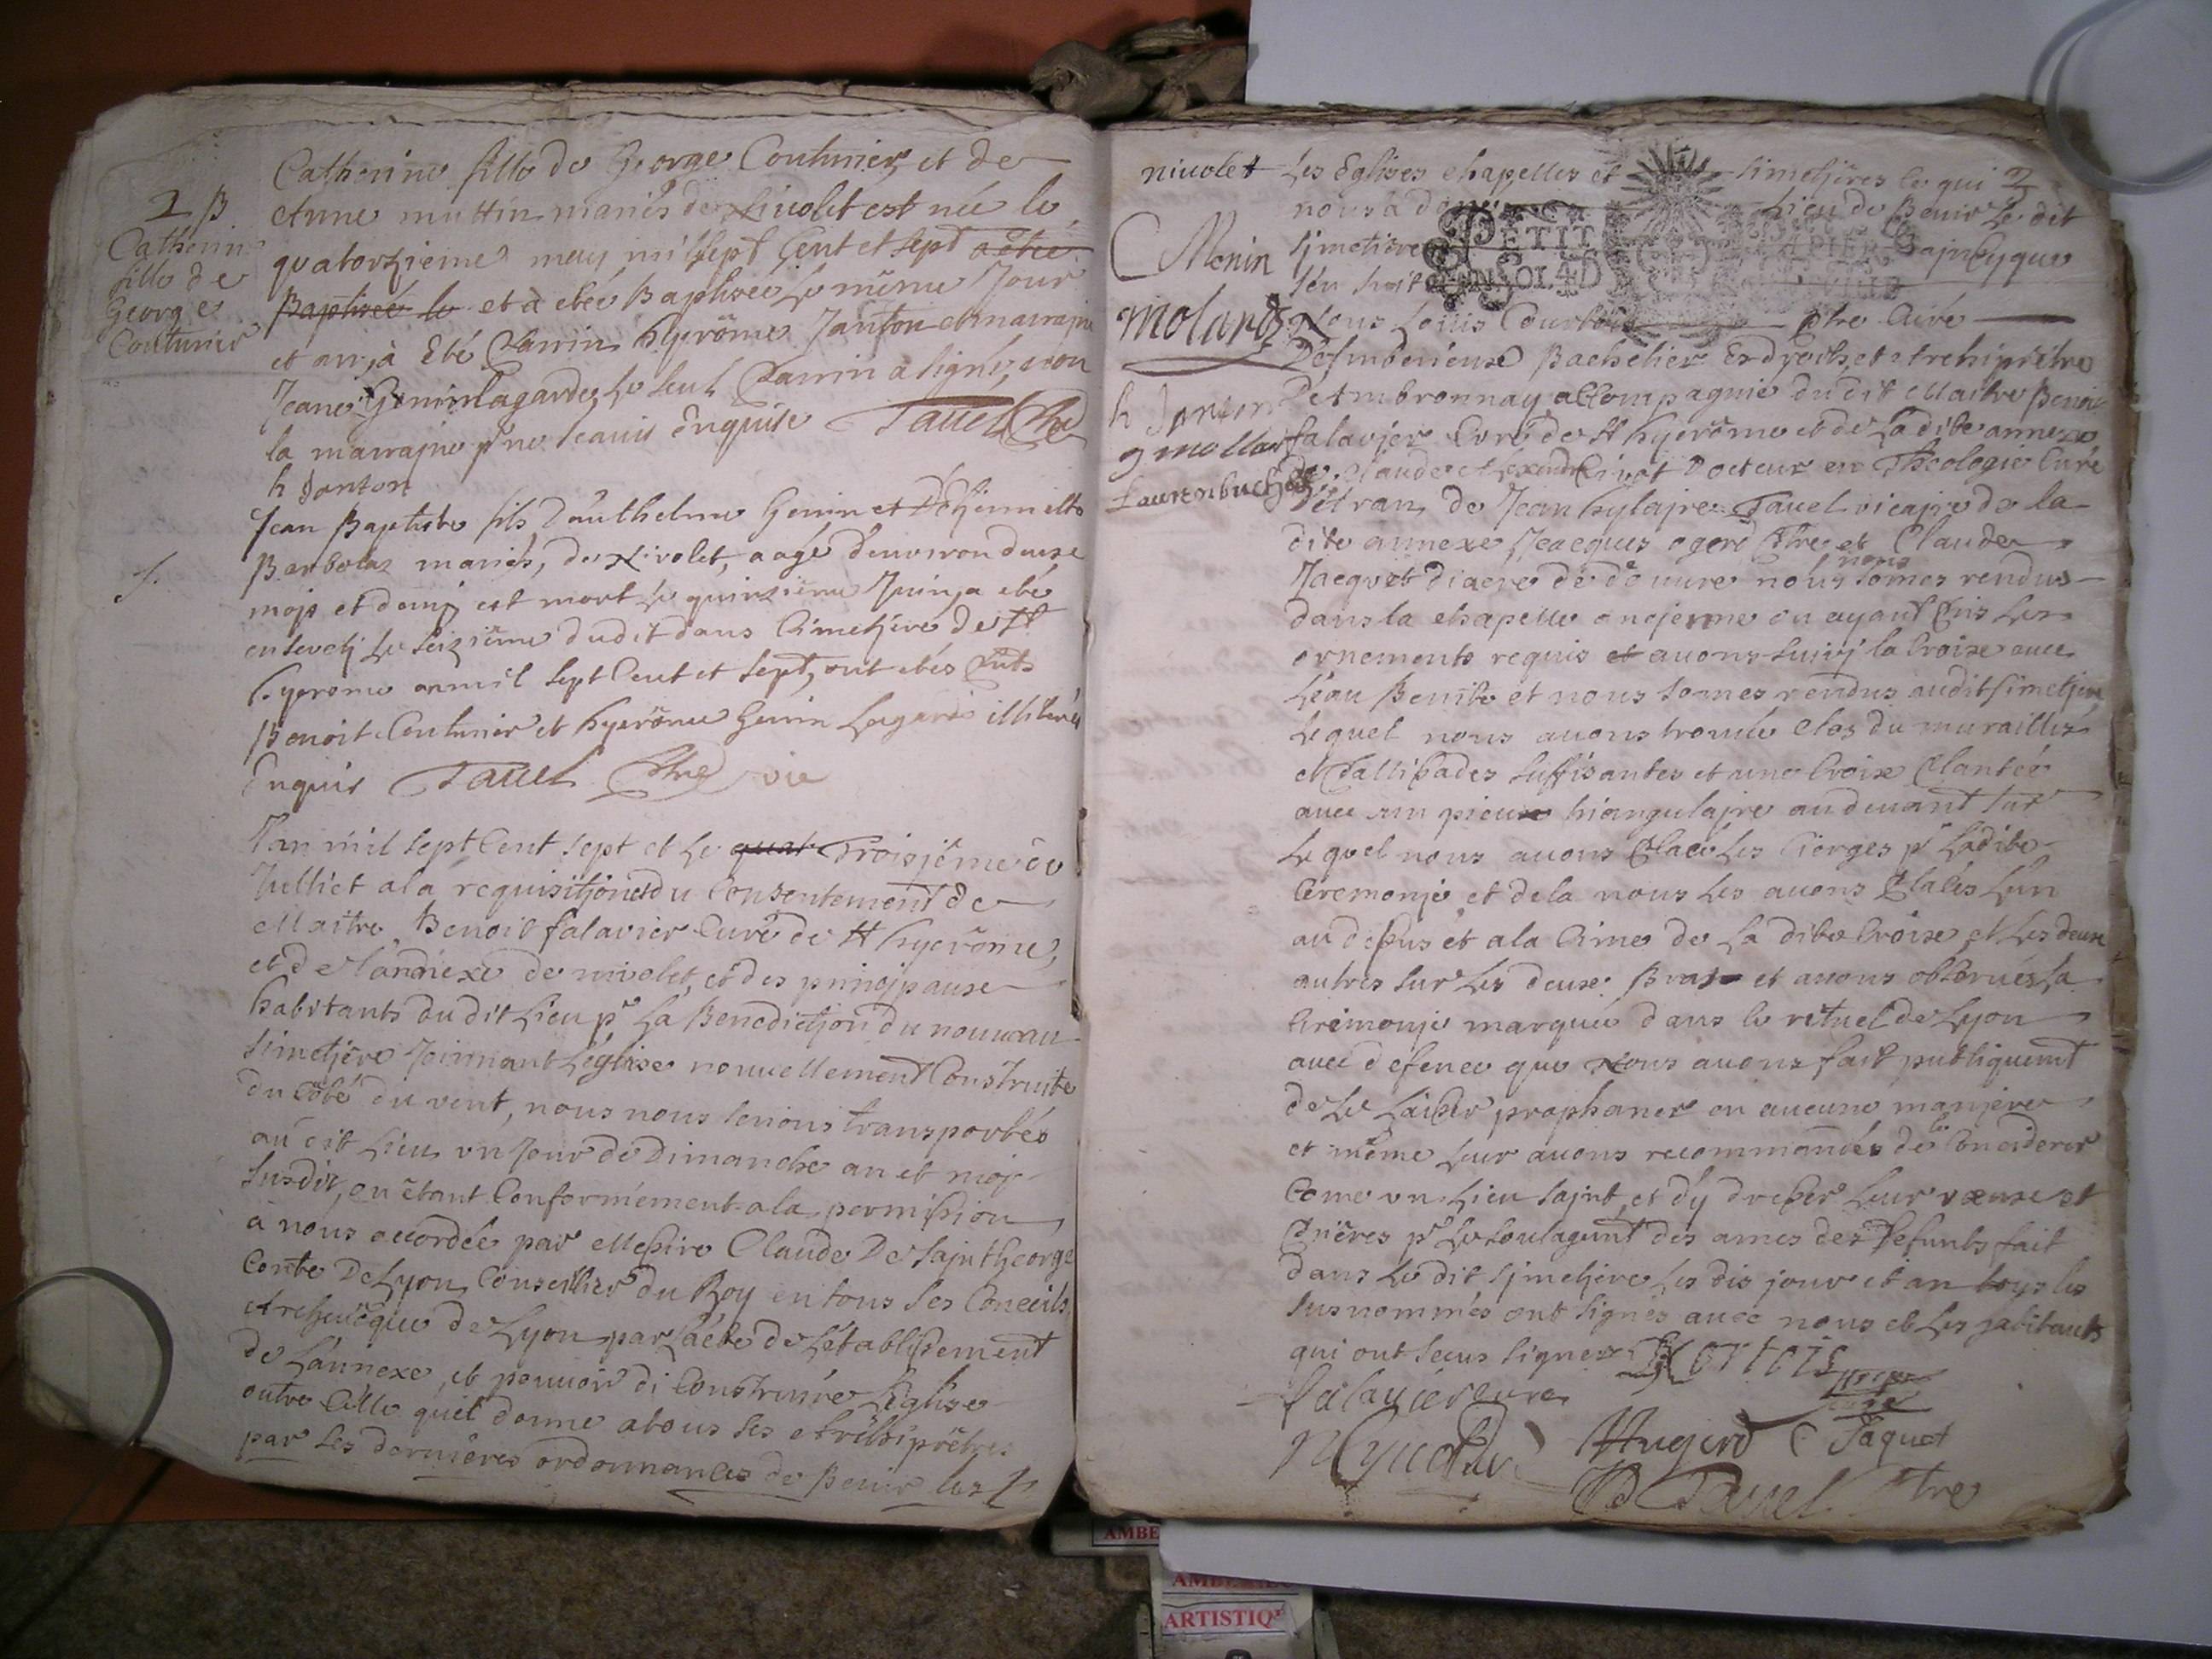 2 B
Catherin
fille de
George
Couturier
Catherine fille de George Couturier et de
Anne muttin mariés de Nivolet est née le
quatorzieme may mil sept cent et sept a êtée
Baptisée le et a etée Baptisée le même Jour
et an, à Eté Parrin hyerôme Janton et marrajne
Jeane Geninlagarde, le seul Parrin à signé, non
la marrajne pr ne scauoir Enquise Tauel Pbre
h Janton
Jean Baptiste fils d'authelme Genin et
Barbolat mariés, de Nivolet, aagé d'enuiron douse
mojs et demj est mort le quinzième Juin, a eté
enseuelj le seizième dudit dans Cimetjère de St
hyerome an mil sept Cent et sept, ont etés Pnts
Benoit Couturier et hyerôme Genin Lagarde illiterés
Enquis Tauel Pbre vic
l'an mil sept Cent sept et le quat Troisjême de
Julliet a la requisitjon et du Consentement de
Maitre Benoit falavier Curé de St hyerôme,
et de l'annexe de nivolet, et des principaux
habitants du dit Lieu pr La Benedictjon du nouueau
simetjère Joinnant L'église nouuellement Construite
du Côté du vent, nous nous serions transportés
au dit Lieu un Jour de Dimanche an et mojs
susdit, en êtant Conformément a la permission
à nous accordée par Messire Claude De Sajnt George
Conte De Lyon Conseillier du Roy en tous ses Conceils,
Archeuêque de Lyon par L'acte de L'établissement
de L'annexe, et pouuoir di Construire L'église
outre Celle quil donne a tous ses Archiprêtres
par ses dernières ordonnances de Benir les
nivolet
C Monin
Molard
h Janton
g mollard
Les Eglises chapelles et simetjères ce qui 2
nous a donné Lieu de Benir Le dit
simetière ajnsy que
s'en suit
PETIT PAPIER
UN SOL 4 D
Nous Louis Courtois Pbre Curé
D'Amberieux Bachelier Es droits, et Archiprêtre
D'Ambronnay accompagnié dudit Maitre Benoit
falavier Curé de St hyerôme et de La dite annexe
Claude Docteur en Theologie Curé
de Jean hylajre Tauel vicajre de la
dite annexe, Jacques ogerd Pbre et Claude
Jacquet diacre de nous nous somes rendus
dans la chapelle ancjenne ou ayant Pris Les
ornements requis et auons suivj la Croix auec
L'eau Benite et nous somes rendus audit simetjere
Lequel nous auons trouué Clos du murailles
et Pallissades suffisantes et une Croix Plantée
auec un pieux triangulajre au deuant sur
Lequel nous auons Placé Les Cierges pr Ladite
Ceremonje et de la nous les auons Plalés L'un
au dessus et a la Cime de La dite Croix et Les deux
autres sur Les deux Bras et auons obseruée La
Ceremonje marquée dans le rituel de Lyon
auec defence que Nous auons fait publiquemt
de le Laisser prophaner en aucune manjere
et même leur auons recommandés de le Conciderer
Come un Lieu sajnt, et d'y dresser Leur vœux et
Prières pr Le soulagemt des ames des Defunts fait
dans Le dit simetjere Les dis jour et an tous les
susnommés ont signés auec nous et Les habitants
qui ont sceus signer Courtois
falauier cure
H ugerd C Jaquet
Tauel Pbre